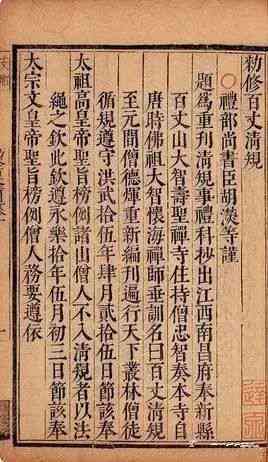 勑修百丈淸規
禮部尚書臣胡濙等謹
題爲重刊淸規事禮科抄出江西南昌府奉新縣
百丈山大智壽聖禪寺住持僧忠智奏本寺自
唐時佛祖大智懷海禪師垂訓名曰百丈淸規
至元間僧德煇重新編刋遍行天下叢林僧徒
循規遵守洪武拾伍年肆月貳拾伍日節該奉
太祖高皇帝聖旨榜例諸山僧人不入淸規者以法
繩之欽此欽遵永樂拾年伍月初三日節該奉
太宗文皇帝聖旨榜例僧人務要遵依